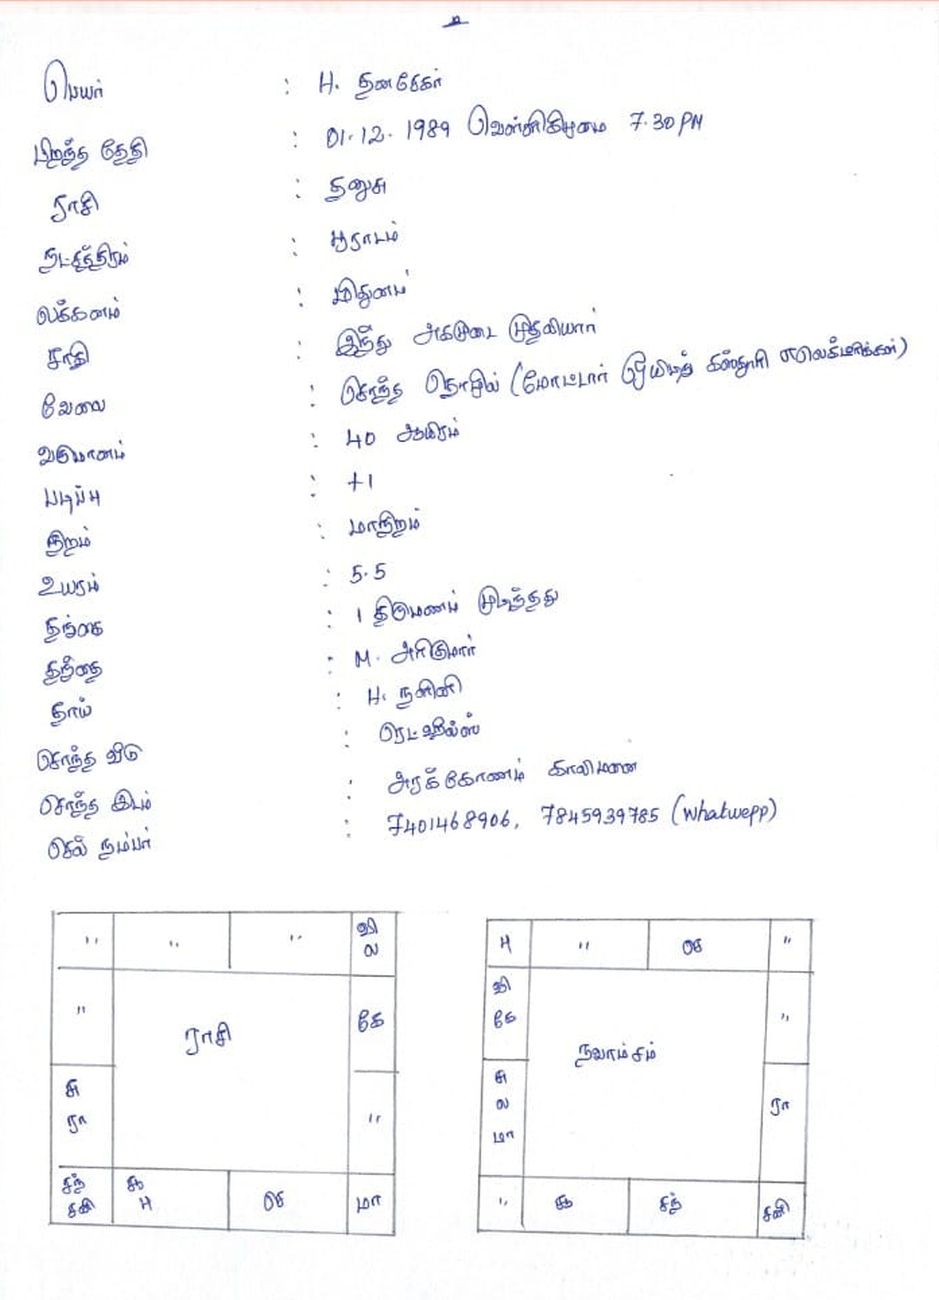 உ
பெயர் : H. தனசேகர்
பிறந்த தேதி : 01.12.1989 வெள்ளிகிழமை 7.30 PM
ராசி : தனுசு
நட்சத்திரம் : பூராடம்
லக்கனம் : மிதுனம்
சாதி : இந்து அகமுடை முதலியார்
வேலை : சொந்த தொழில் (மோட்டார் எலெக்ட்ரிக்கள்)
வருமானம் : 40 ஆயிரம்
படிப்பு : +1
நிறம் : மாநிறம்
உயரம் : 5.5
தங்கை : 1 திருமணம் முடிந்தது
தந்தை : M. அரிகுமார்
தாய் : H. நளினி
சொந்த வீடு : ரெட்ஹில்ஸ்
சொந்த இடம் : அரக்கோணம் காலிமனை
செல் நம்பர் : 7401468906, 7845939785 (Whatwepp)
" " " வி ல
" ராசி கே
சு ரா "
சந் சனி சூ பு செ மா
பு " செ "
வி கே நவாம்சம் "
சு ல மா ரா
" சூ சந் சனி